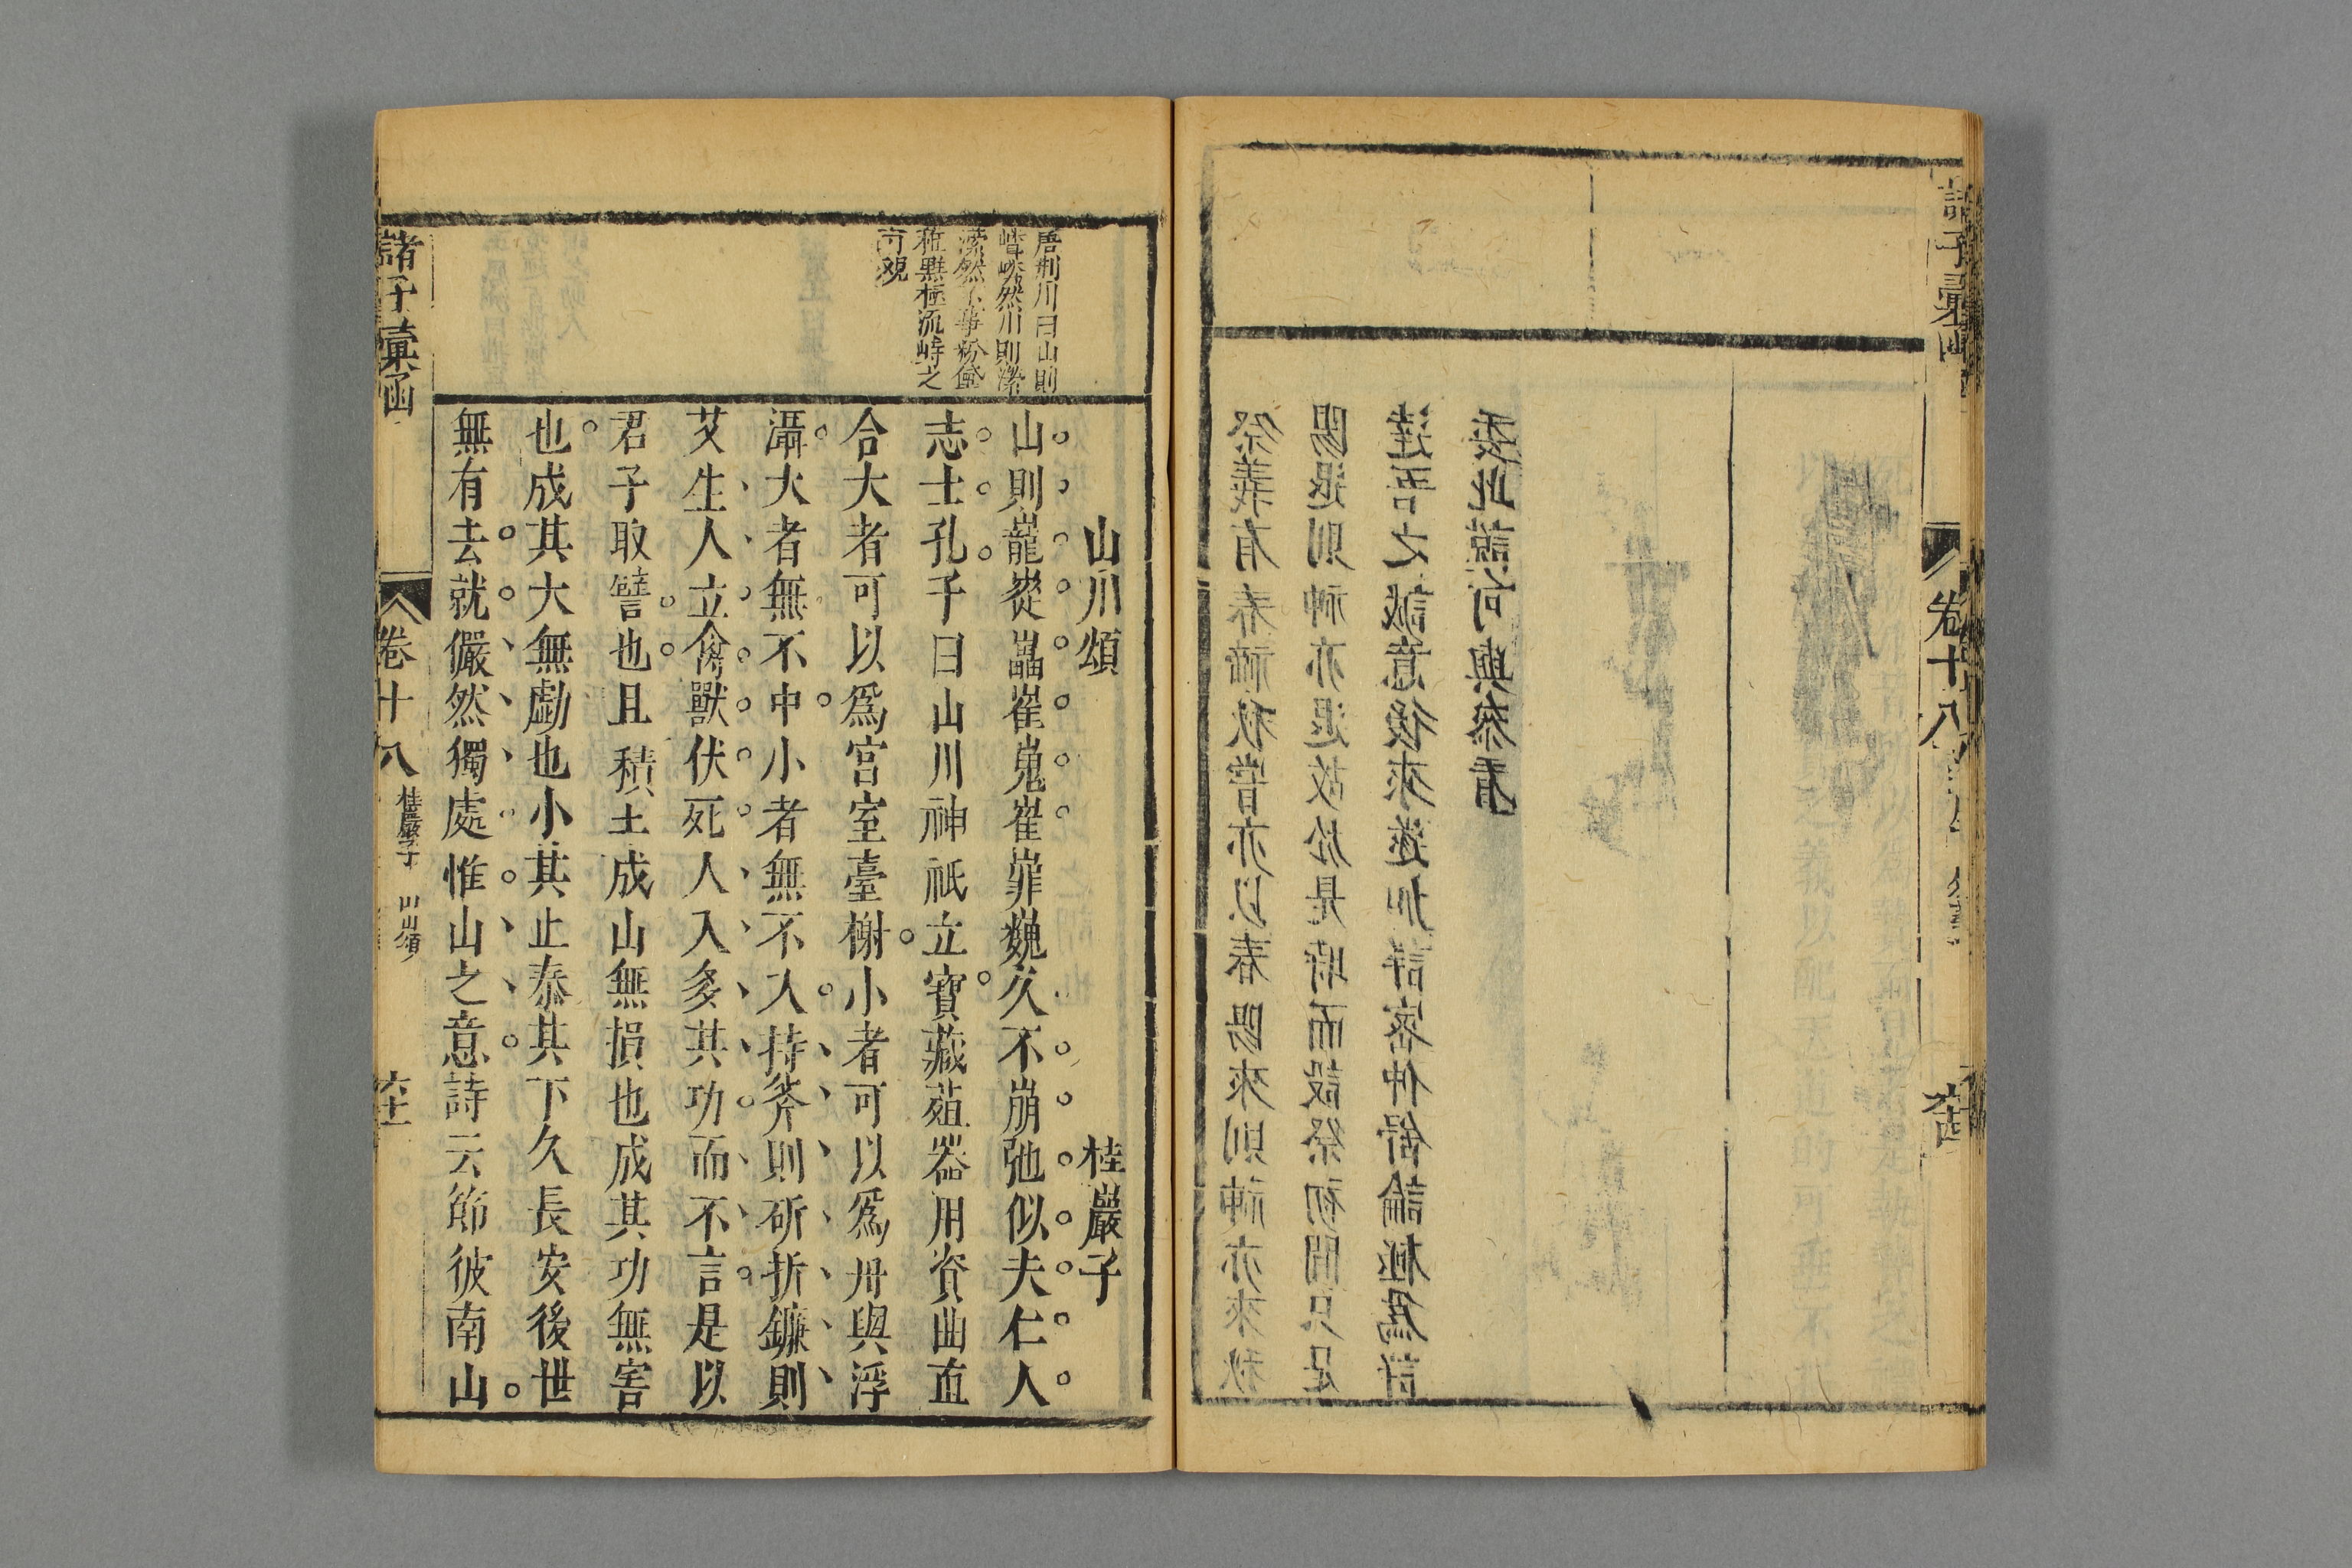 諸子彙函
卷十八
山川頌
桂巖子
山則巃嵸嵓崔嵬嶊嶵巍久不崩弛似夫仁人
志士孔子曰山川神祇立寶藏殖器用資曲直
合大者可以爲宮室臺榭小者可以爲舟與浮
灄大者無不中小者無不入持斧則斫折鐮則
艾生人立禽獸伏死人入多其功而不言是以
君子取譬也且積土成山無損也成其功無害
也成其大無虧也小其止泰其下久長安後世
無有去就儼然獨處惟山之意詩云節彼南山
唐荆川曰山則
然川則瀠
瀠然不事粉黛
種種極流峙之
可觀
諸子彙函
卷十八
桂巖子
山川頌
祭義有春禘秋嘗亦以春陽來則神亦來秋
陽退則神亦退故於是時而設祭初間只是
達吾之誠意後來遂加詳密仲舒論極爲詳
委此認句與參看